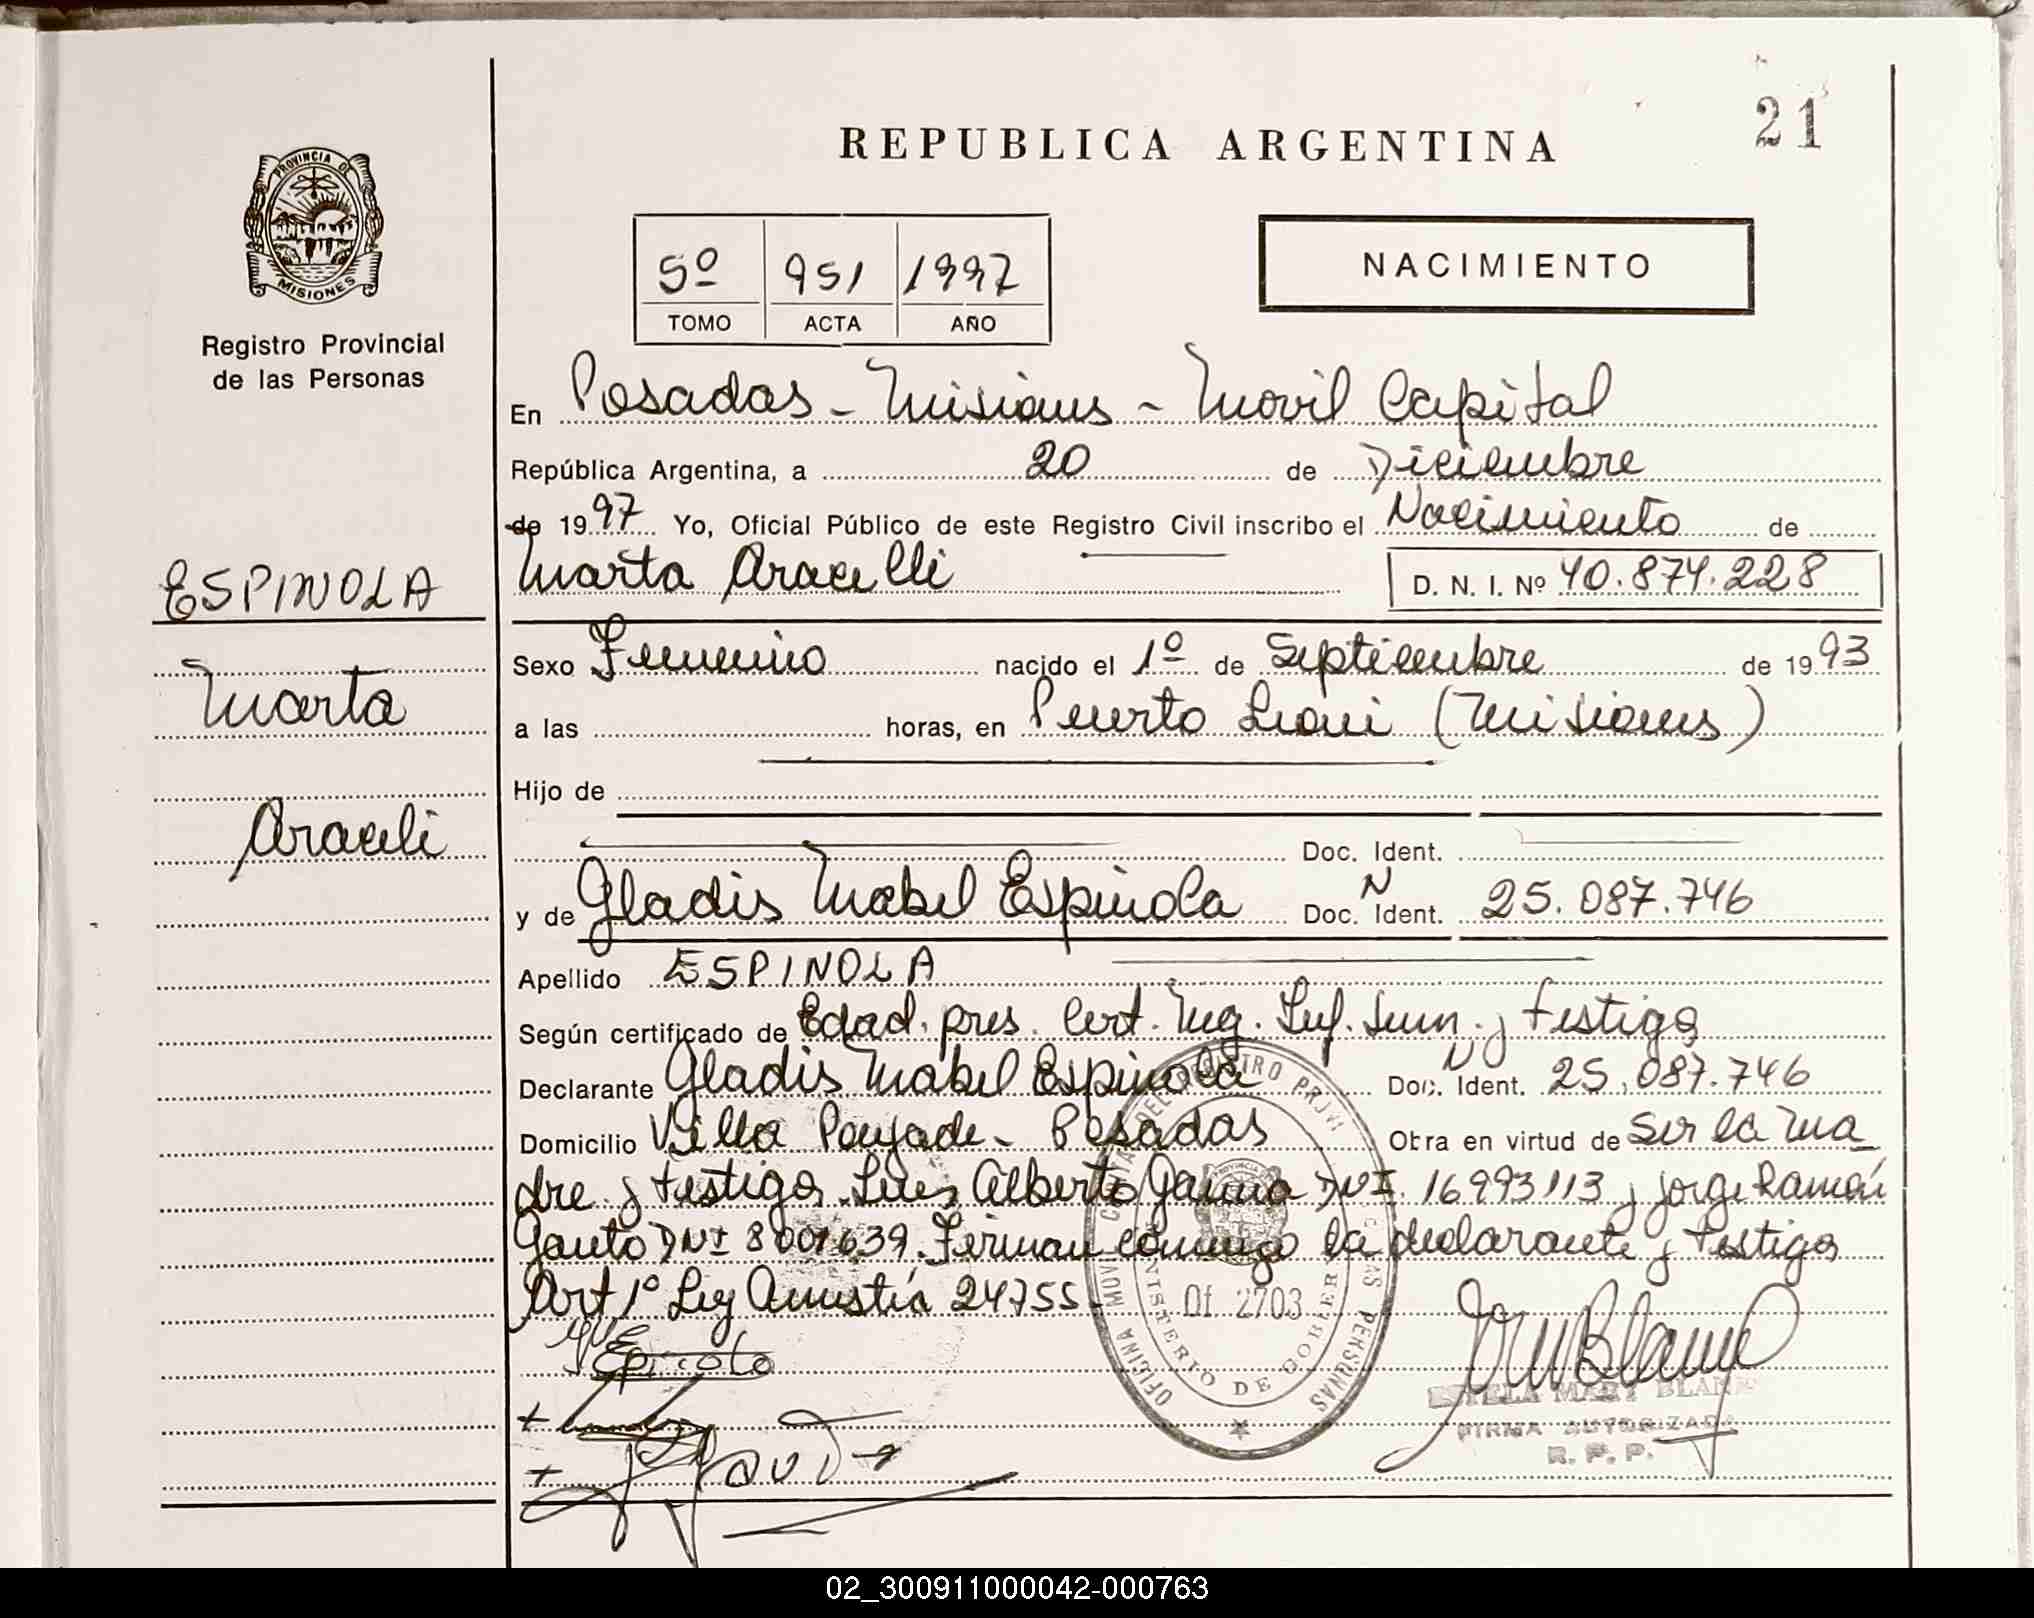 21
REPUBLICA ARGENTINA
PROVINCIA DE
MISIONES
Registro Provincial
de las Personas
5º 951 1997
TOMO ACTA AÑO
NACIMIENTO
En Posadas - Misiones - Movil Capital
República Argentina, a 20 de Diciembre
de 1997 Yo, Oficial Público de este Registro Civil inscribo el Nacimiento de
Marta Aracelli D. N. I. Nº 40.874.228
ESPINOLA
Marta
Araceli
Sexo Femenino nacido el 1º de Septiembre de 1993
a las horas, en Puerto Leoni (Misiones)
Hijo de
Doc. Ident.
y de Gladis Mabel Espinola Doc. N Ident. 25.087.746
Apellido ESPINOLA
Según certificado de Edad. pres. Cert. Neg. Inf. Sum. y testigos
Declarante Gladis Mabel Espinola Doc. N Ident. 25.087.746
Domicilio Villa Poujade - Posadas Obra en virtud de Ser la ma
dre y testigos Luis Alberto DNI 16993113 y Jorge Ramón
Gauto DNI 8001639. Firman conmigo la declarante y testigos
Art 1º Ley Amnistía 24755
OFICINA MOVIL CAPITAL DEL REGISTRO PROVINCIAL DE LAS PERSONAS
MINISTERIO DE GOBIERNO
Of 2703
ESTELA MARY BLANC
FIRMA AUTORIZADA
R. P. P.
02_300911000042-000763